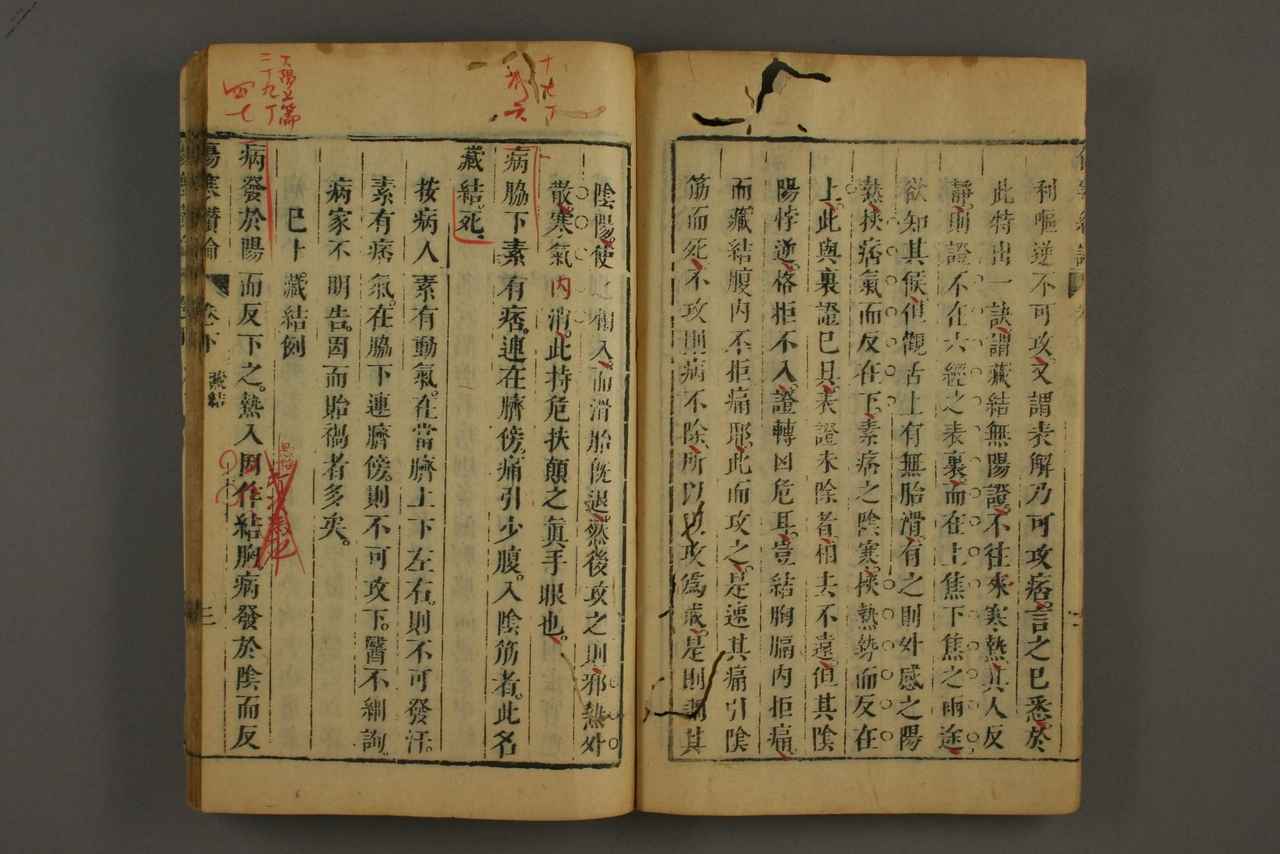 利嘔逆不可攻又謂表解乃可攻痞言之已悉於
此特出一訣謂藏結無陽證不往來寒熱其人反
靜則證不在六經之表裏而在上焦下焦之兩途
欲知其候但觀舌上有無胎滑有之則外感之陽
熱挾痞氣而反在下素痞之陰寒挾熱勢而反在
上此與裏證已具表證未除者相去不遠但其陰
陽悖逆格拒不入證轉凶危耳豈結胸膈內拒痛
而藏結腹內不拒痛耶此而攻之是速其痛引陰
筋而死不攻則病不除所以以攻爲戒是則調其
陰陽使之相入而滑胎旣退然後攻之則邪熱外
散寒氣內消此持危扶顛之眞手眼也
病脇下素有痞連在臍傍痛引少腹入陰筋者此名
藏結死
按病人素有動氣在當臍上下左右則不可發汗
素有痞氣在脇下連臍傍則不可攻下醫不細詢
病家不明告因而貽禍者多矣
巳十藏結例
病發於陽而反下之熱入因作結胸病發於陰而反
傷寒纘論 卷下 藏結 三
十七丁
太陽上篇
二十九丁
四七